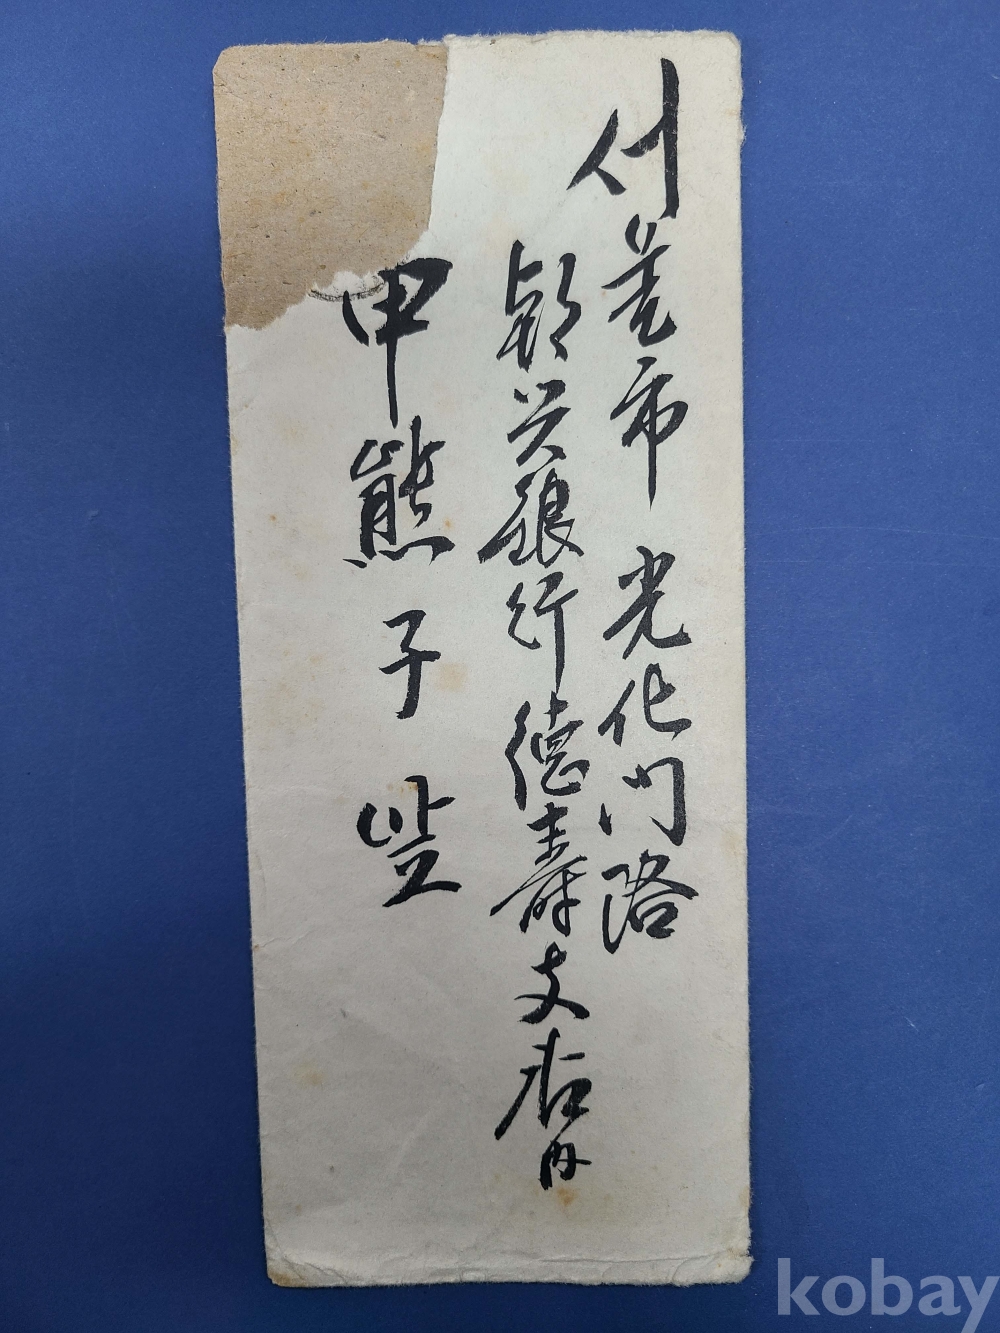 서울市 光化門路
朝興銀行德壽支店內
申熊子
kobay